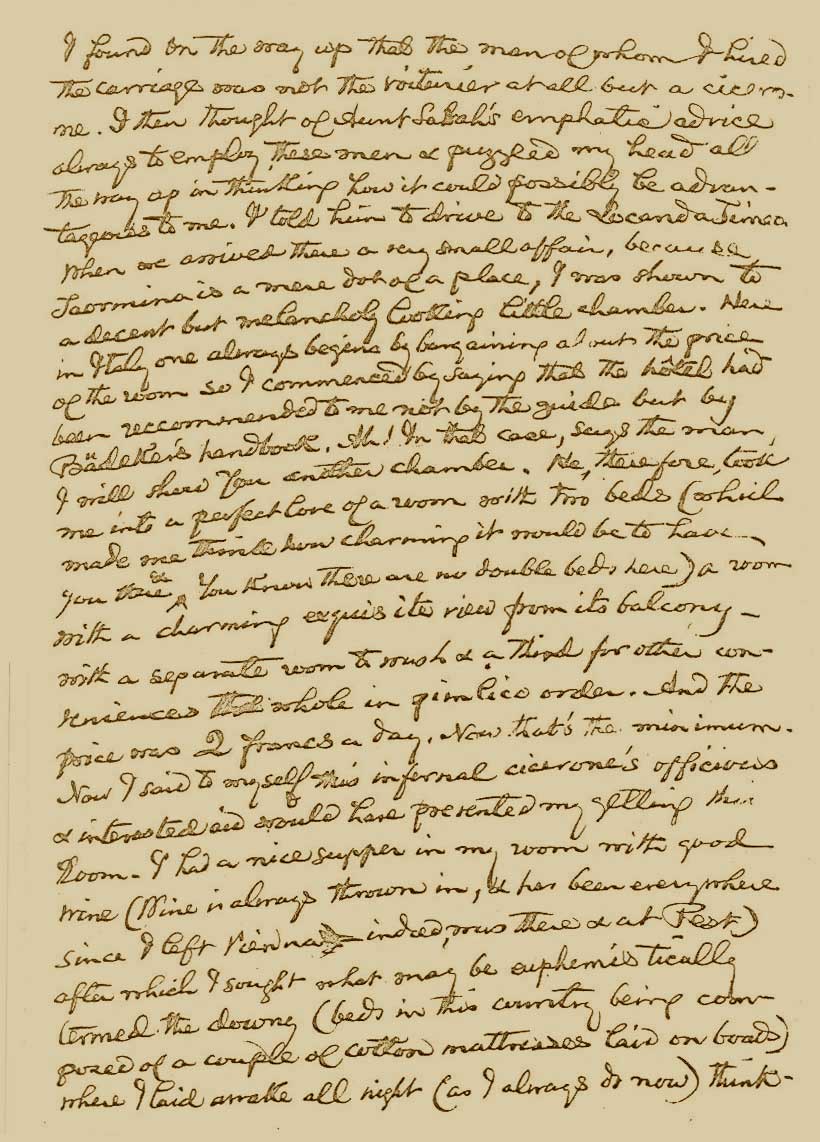 I found on the way up that the man of whom I hired
the carriage was not the voiturier at all but a cicero-
ne. I then thought of Aunt Sarah's emphatic advice
always to employ these men & puzzled my head all
the way up in thinking how it could possibly be advan-
tageous to me. I told him to drive to the Locanda Timeo
When we arrived there a very small affair, because
Taormina is a mere dot of a place, I was shown to
a decent but melancholy looking little chamber. Here
in Italy one always begins by bargaining about the price
of the room so I commenced by saying that the hôtel had
been reccommended to me not by the guide but by
Bädeker's handbook. Ah! In that case, says the man,
I will show you another chamber. He, therefore, took
me into a perfect love of a room with two beds (which
made me think how charming it would be to have
you there. You know there are no double beds here) a room
with a charming exquisite view from its balcony –
with a separate room to wash & a third for other con-
veniences the whole in pimlico order. And the
price was 2 francs a day. Now that's the minimum.
Now I said to myself this infernal cicerone's officious
& interested aid would have prevented my getting this
Room. I had a nice supper in my room with good
wine (Wine is always thrown in, & has been everywhere
since I left Vienna indeed, was there & at Pest)
after which I sought what may be euphemistically
termed the downy (beds in this country being com-
posed of a couple of cotton mattrisses laid on boads)
where I laid awake all night (as I always do now) think-